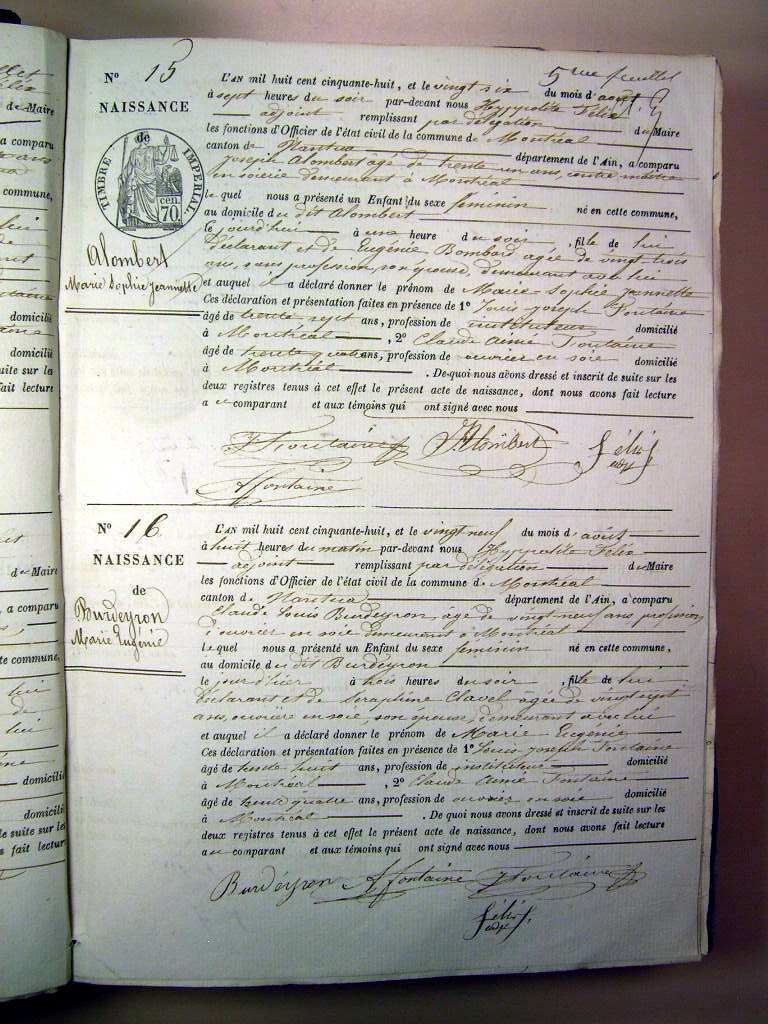 5me feuillet
N° 15
NAISSANCE
de
TIMBRE IMPÉRIAL
70 cen.
Alombert
Marie Sophie Jeannette
L'AN mil huit cent cinquante-huit, et le vingt six du mois d'août
à sept heures du soir par-devant nous Hyppolite Félix
adjoint remplissant par délégation du Maire
les fonctions d'Officier de l'état civil de la commune de Montréal
canton de Nantua département de l'Ain, a comparu
Joseph Alombert agé de trente un ans, contre maître
en soierie demeurant à Montréal
lequel nous a présenté un Enfant du sexe feminin né en cette commune,
au domicile du dit Alombert
le jourd'hui à une heure du soir, fille de lui
déclarant et de Eugénie Bombard agée de vingt trois
ans, sans profession, son épouse, demeurant avec lui
et auquel il a déclaré donner le prénom de Marie Sophie Jeannette
Ces déclaration et présentation faites en présence de 1° Louis Joseph Fontaine
âgé de trente sept ans, profession de instituteur domicilié
à Montréal, 2° Claude Aimé Fontaine
âgé de trente quatre ans, profession de ouvrier en soie domicilié
à Montréal. De quoi nous avons dressé et inscrit de suite sur les
deux registres tenus à cet effet le présent acte de naissance, dont nous avons fait lecture
au comparant et aux témoins qui ont signé avec nous
Fontaine Alombert Félix
adj
Fontaine
N° 16
NAISSANCE
de
Burdeyron
Marie Eugénie
L'AN mil huit cent cinquante-huit, et le vingt neuf du mois d'août
à huit heures du matin par-devant nous Hyppolite Félix
adjoint remplissant par délégation du Maire
les fonctions d'Officier de l'état civil de la commune de Montréal
canton de Nantua département de l'Ain, a comparu
Claude Louis Burdeyron, âgé de vingt neuf ans profession
d'ouvrier en soie demeurant à Montréal
Lequel nous a présenté un Enfant du sexe feminin né en cette commune,
au domicile du dit Burdeyron
le jour d'hier à trois heures du soir, fille de lui
déclarant et de Séraphine Clavel agée de vingt sept
ans, ouvrière en soie, son épouse, demeurant avec lui
et auquel il a déclaré donner le prénom de Marie Eugénie
Ces déclaration et présentation faites en présence de 1° Louis Joseph Fontaine
âgé de trente huit ans, profession de instituteur domicilié
à Montréal, 2° Claude Aimé Fontaine
âgé de trente quatre ans, profession de ouvrier en soie domicilié
à Montréal. De quoi nous avons dressé et inscrit de suite sur les
deux registres tenus à cet effet le présent acte de naissance, dont nous avons fait lecture
au comparant et aux témoins qui ont signé avec nous
Burdeyron Fontaine Fontaine
Félix
adj